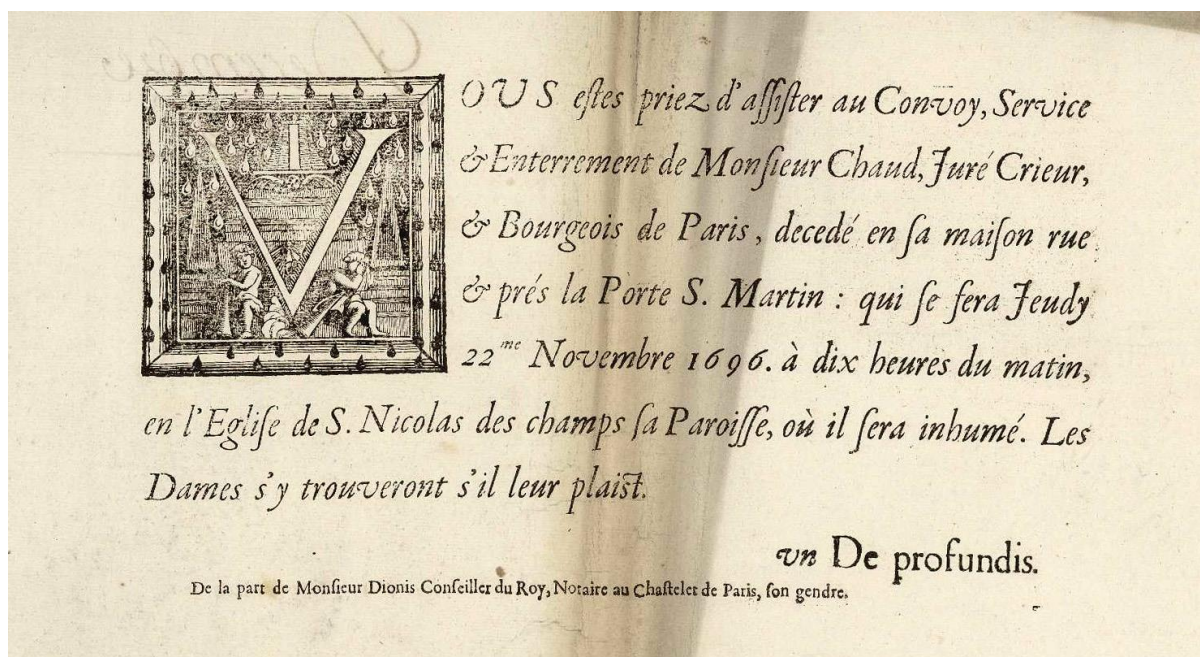 VOUS eſtes priez d'aſſiſter au Convoy, Service
& Enterrement de Monſieur Chaud, Juré Crieur,
& Bourgeois de Paris, decedé en ſa maiſon rue
& prés la Porte S. Martin : qui ſe fera Jeudy
22me Novembre 1696. à dix heures du matin,
en l'Egliſe de S. Nicolas des champs ſa Paroiſſe, où il ſera inhumé. Les
Dames s'y trouveront s'il leur plaiſt.
vn De profundis.
De la part de Monſieur Dionis Conſeiller du Roy, Notaire au Chaſtelet de Paris, ſon gendre.